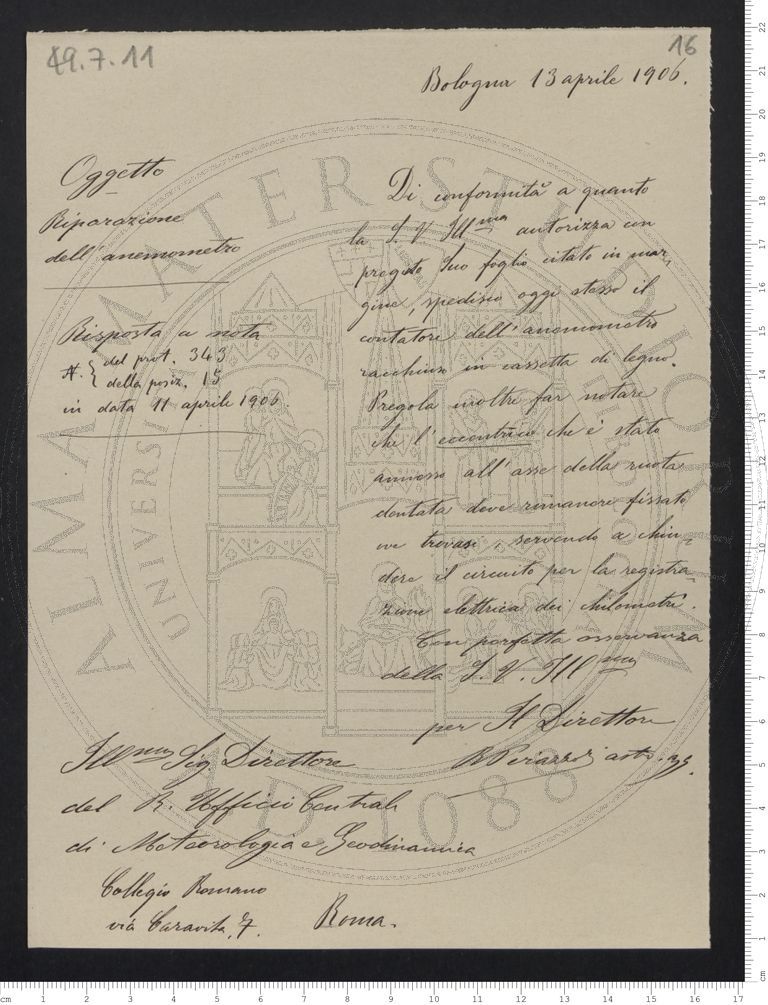 49.7.11
16
Bologna 13 aprile 1906.
Oggetto
Riparazione
dell'anemometro
Risposta a nota
N. { del prot. 343
della posiz. 15
in data 11 aprile 1906.
Di conformità a quanto
la S. V. Ill.ma autorizza con
pregiato Suo foglio citato in mar-
gine, spedisco oggi stesso il
contatore dell'anemometro
racchiuso in cassetta di legno.
Pregola inoltre far notare
che l'eccentrico che è stato
annesso all'asse della ruota
dentata deve rimanere fissato
ove trovasi, servendo a chiu-
dere il circuito per la registra-
zione elettrica dei chilometri.
Con perfetta osservanza
della S. V. Ill.ma
per Il Direttore
R Pirazzoli
Ill.mo Sig Direttore
del R. Ufficio Centrale
di Meteorologia e Geodinamica
Collegio Romano
via Caravita, 7. Roma.
ALMA MATER STUDIORUM
A.D. 1088